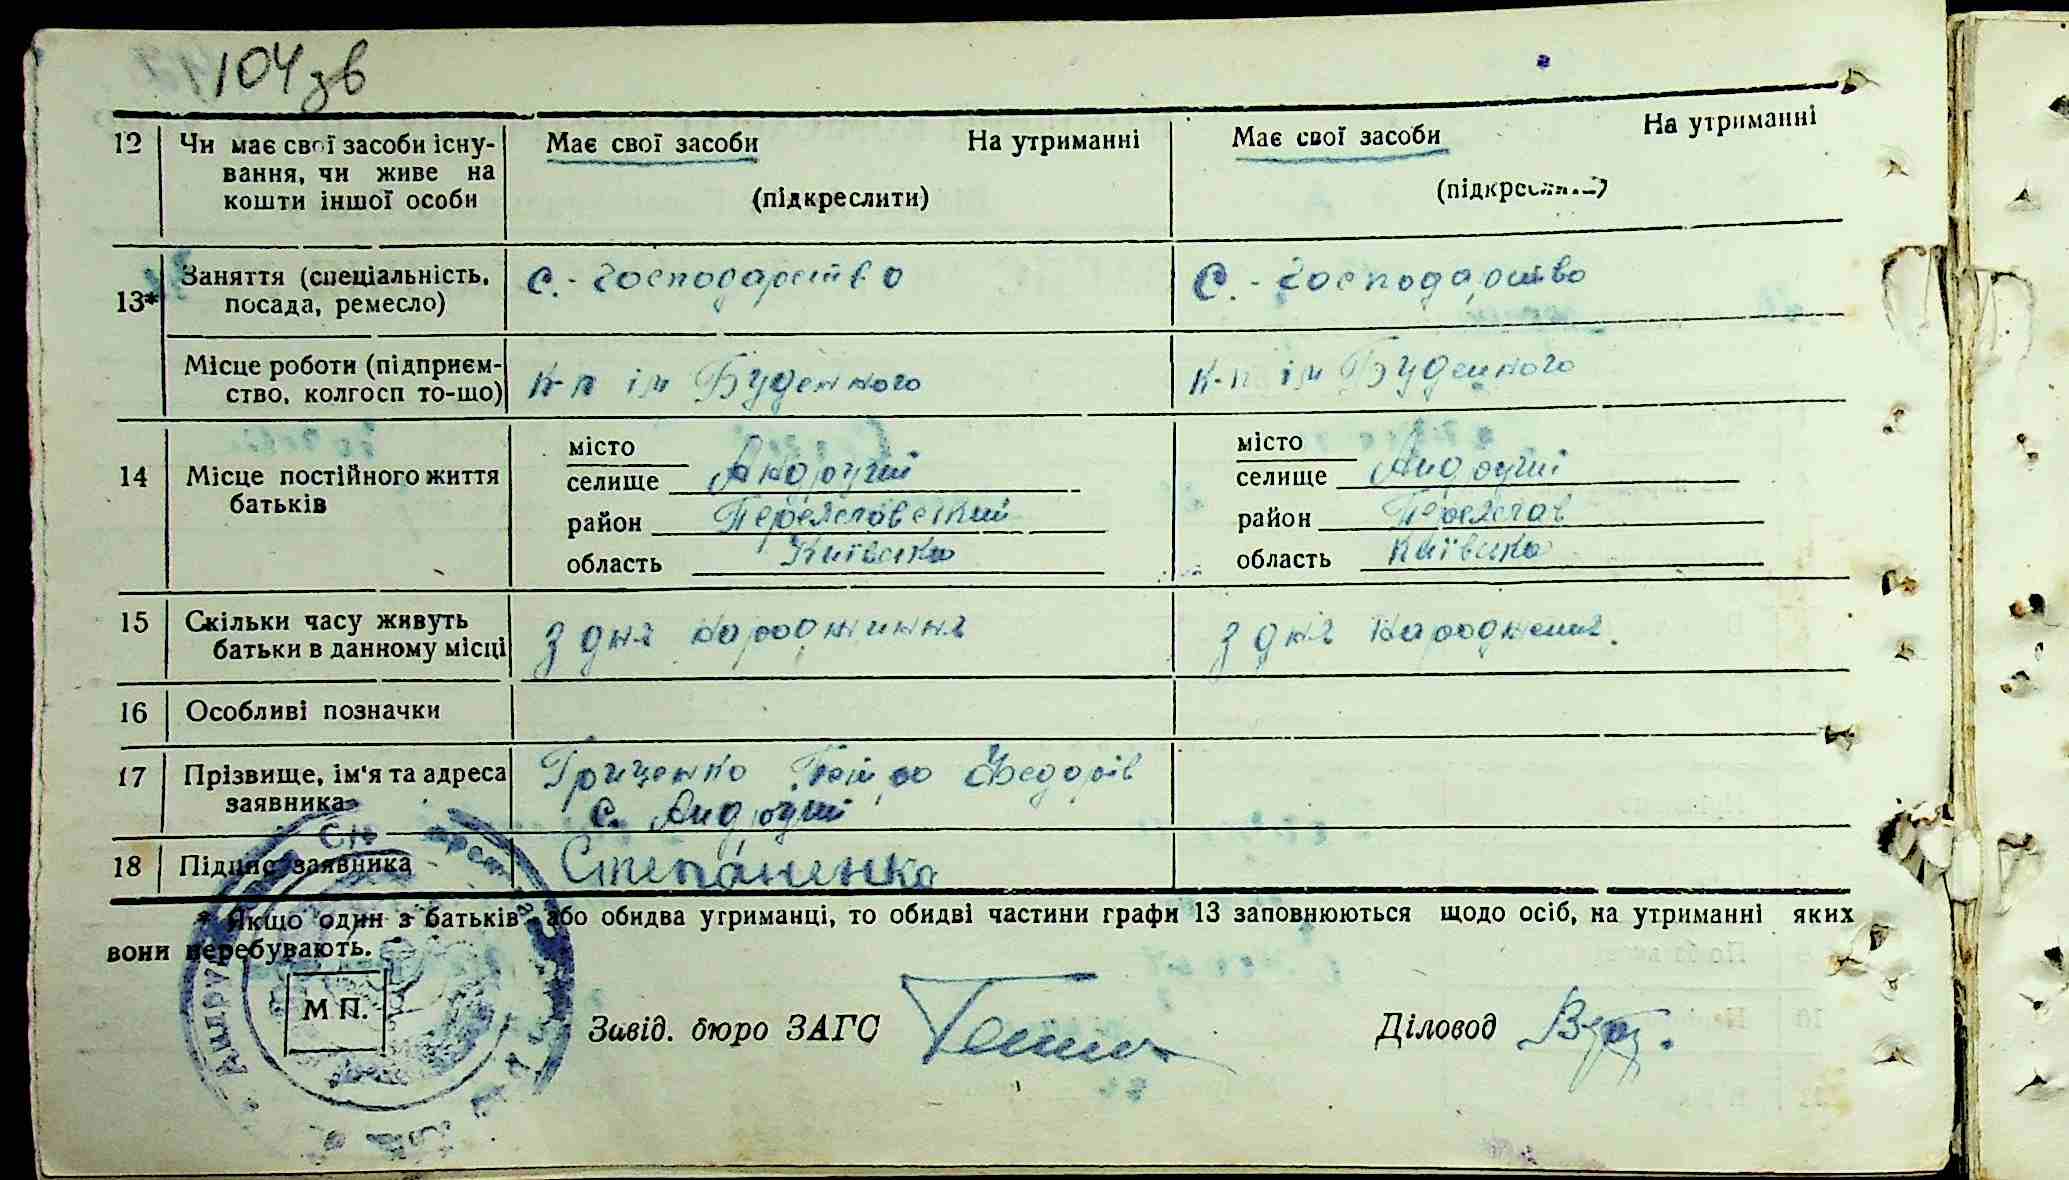 104зв
12 Чи має свої засоби існу- Має свої засоби На утриманні Має свої засоби На утриманні
вання, чи живе на
кошти іншої особи (підкреслити) (підкреслити)
13* Заняття (спеціальність, с.-господарство с.-господарство
посада, ремесло)
Місце роботи (підприєм- к-п ім Буденного к-п ім Буденного
ство, колгосп то-що)
14 Місце постійного життя місто місто
батьків селище Андруші селище Андруші
район Переяславський район Переяслав
область Київська область Київська
15 Скільки часу живуть з дня народжиння з дня народження.
батьки в данному місці
16 Особливі позначки
17 Прізвище, ім'я та адреса Гриценко Федорів
заявника с. Андруші
18 Підпис заявника Степаненко
* Якщо один з батьків або обидва утриманці, то обидві частини графи 13 заповнюються щодо осіб, на утриманні яких
вони перебувають.
М П. Завід. бюро ЗАГС Діловод